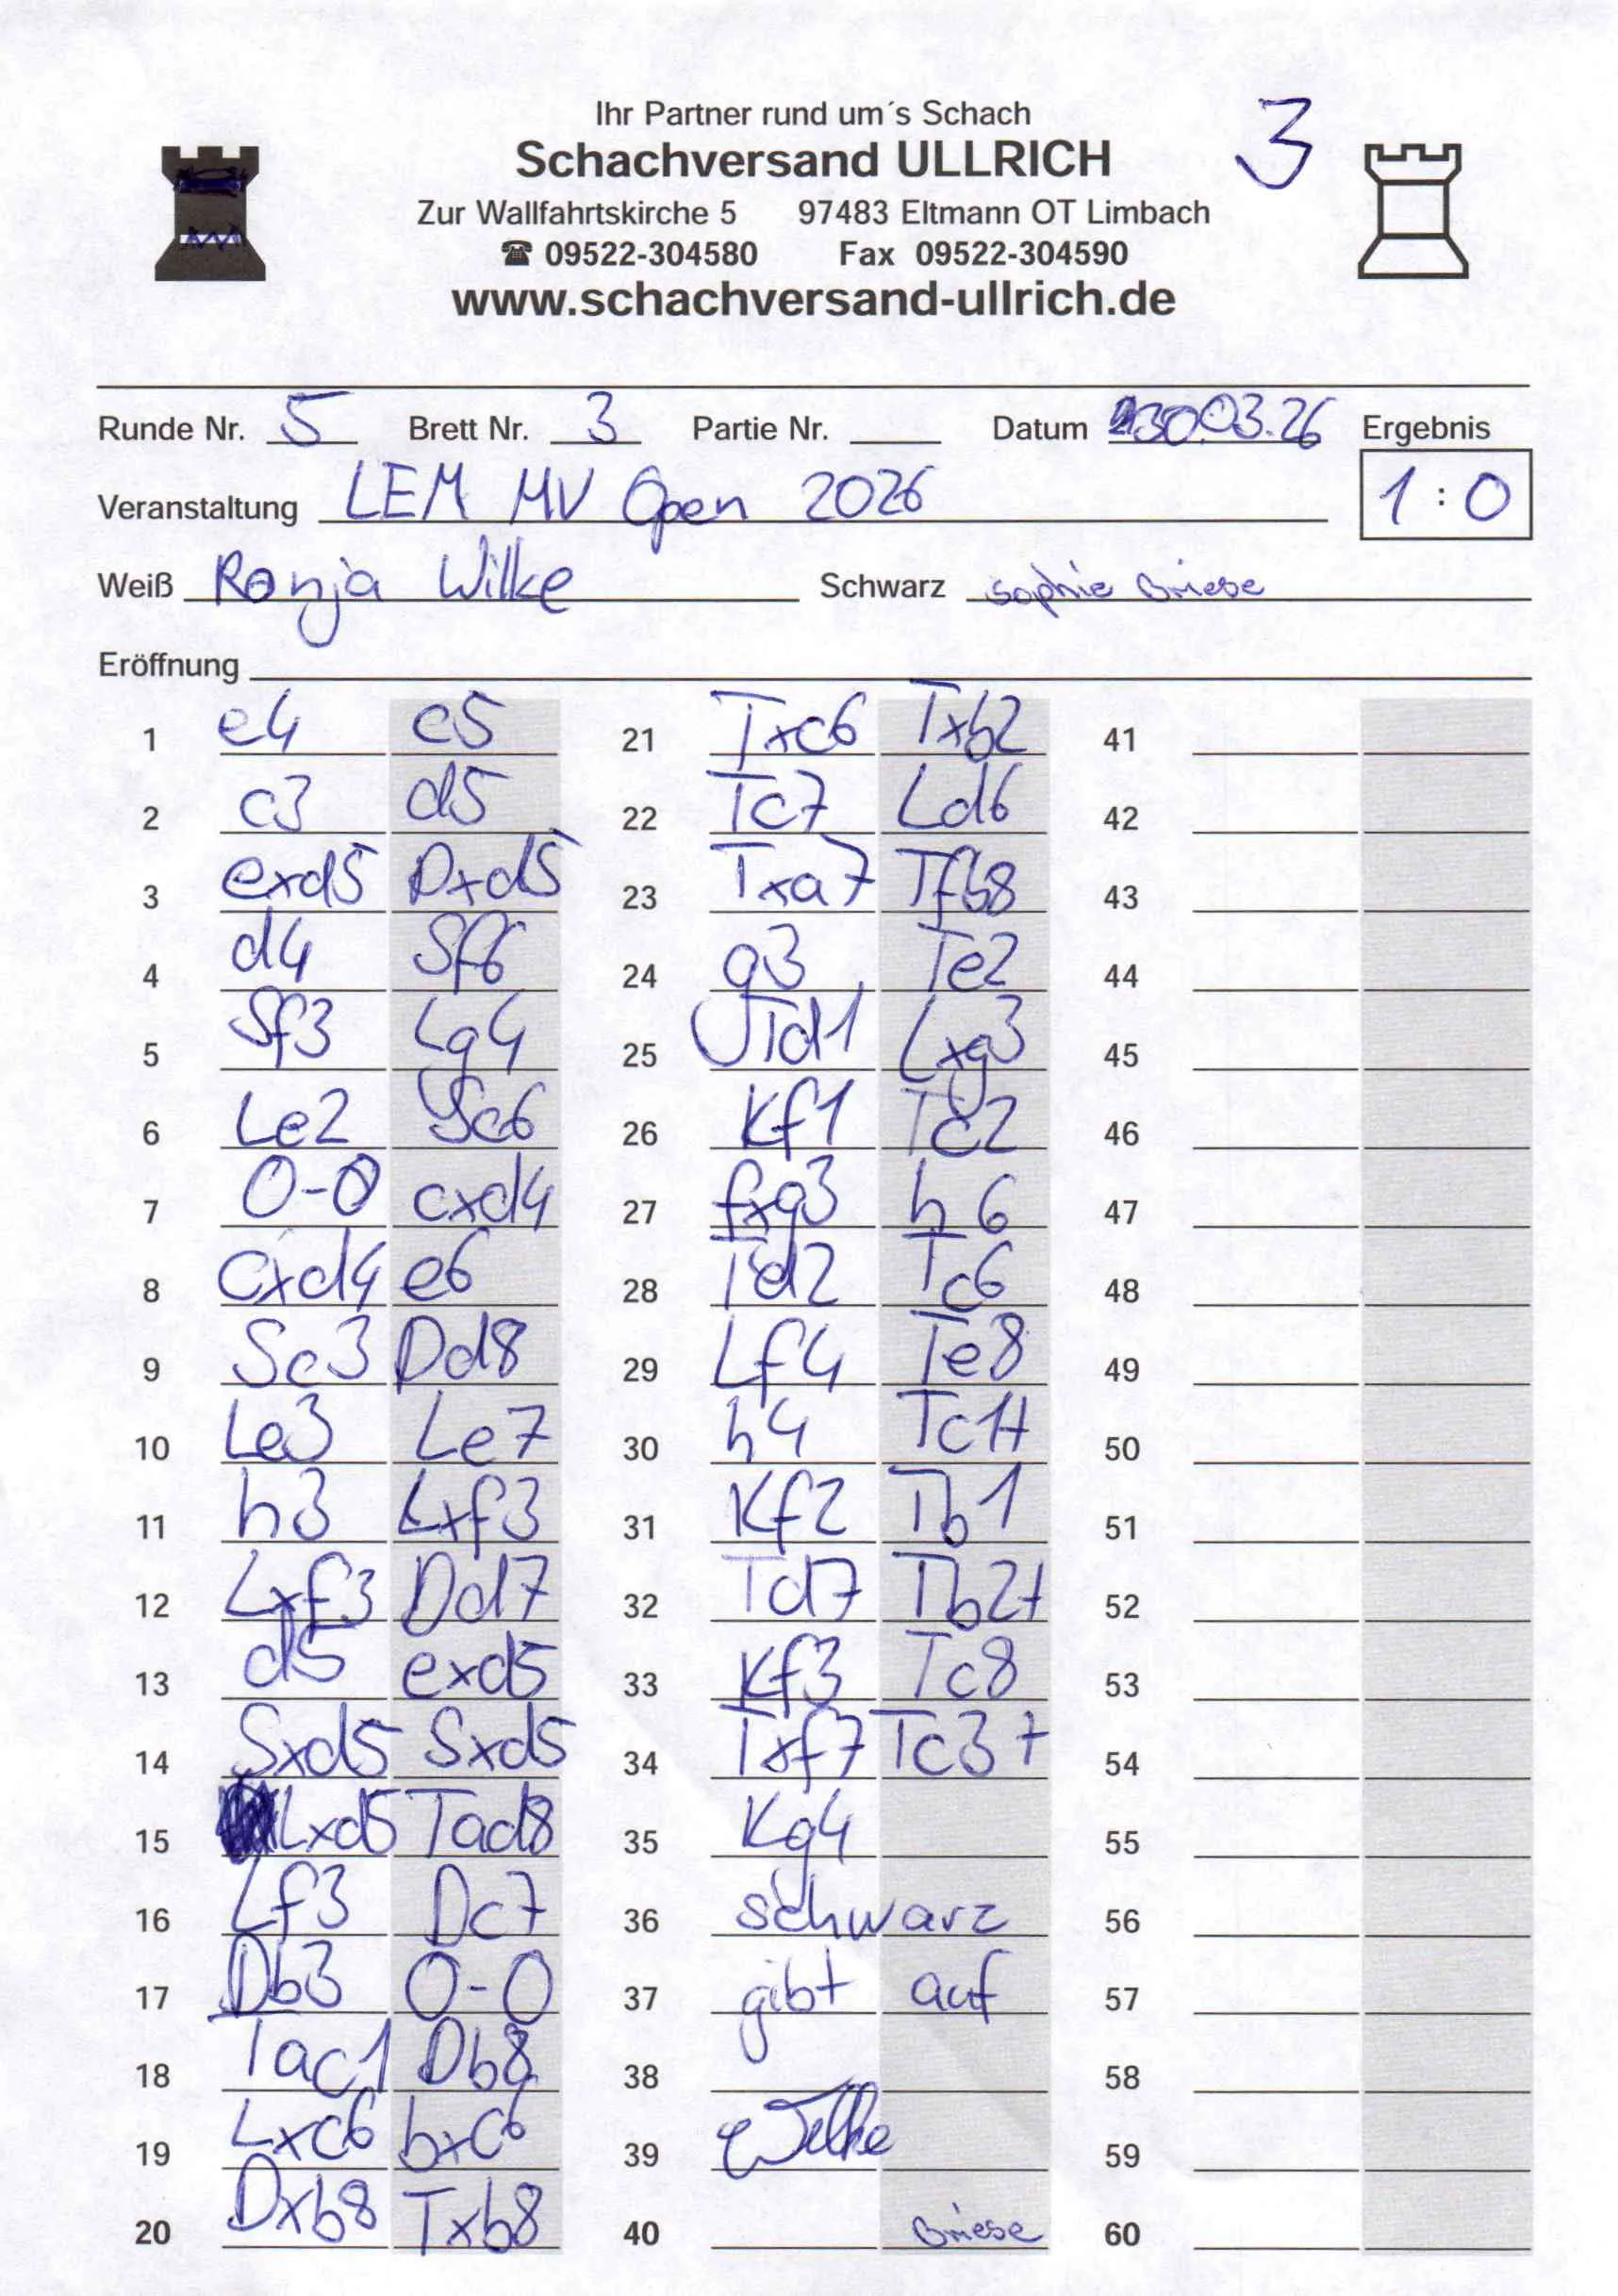 Ihr Partner rund um´s Schach
3
Schachversand ULLRICH
Zur Wallfahrtskirche 5 97483 Eltmann OT Limbach
☎ 09522-304580 Fax 09522-304590
www.schachversand-ullrich.de
Runde Nr. 5 Brett Nr. 3 Partie Nr. Datum 30.03.26 Ergebnis
Veranstaltung LEM MV Open 2026 1 : 0
Weiß Ronja Wilke Schwarz Sophie Briese
Eröffnung
1 e4 c5 21 Txc6 Txb2 41
2 c3 d5 22 Tc7 Ld6 42
3 exd5 Dxd5 23 Txa7 Tfb8 43
4 d4 Sf6 24 g3 Te2 44
5 Sf3 Lg4 25 Td1 Lxg3 45
6 Le2 Sc6 26 Kf1 Tc2 46
7 0-0 cxd4 27 fxg3 h6 47
8 cxd4 e6 28 Td2 Tc6 48
9 Sc3 Dd8 29 Lf4 Te8 49
10 Le3 Le7 30 h4 Tc1+ 50
11 h3 Lxf3 31 Kf2 Tb1 51
12 Lxf3 Dd7 32 Td7 Tb2+ 52
13 d5 exd5 33 Kf3 Tc8 53
14 Sxd5 Sxd5 34 Txf7 Tc3+ 54
15 Lxd5 Tad8 35 Kg4 55
16 Lf3 Dc7 36 schwarz 56
17 Db3 0-0 37 gibt auf 57
18 Tac1 Db8 38 58
19 Lxc6 bxc6 39 Wilke 59
20 Dxb8 Txb8 40 Briese 60